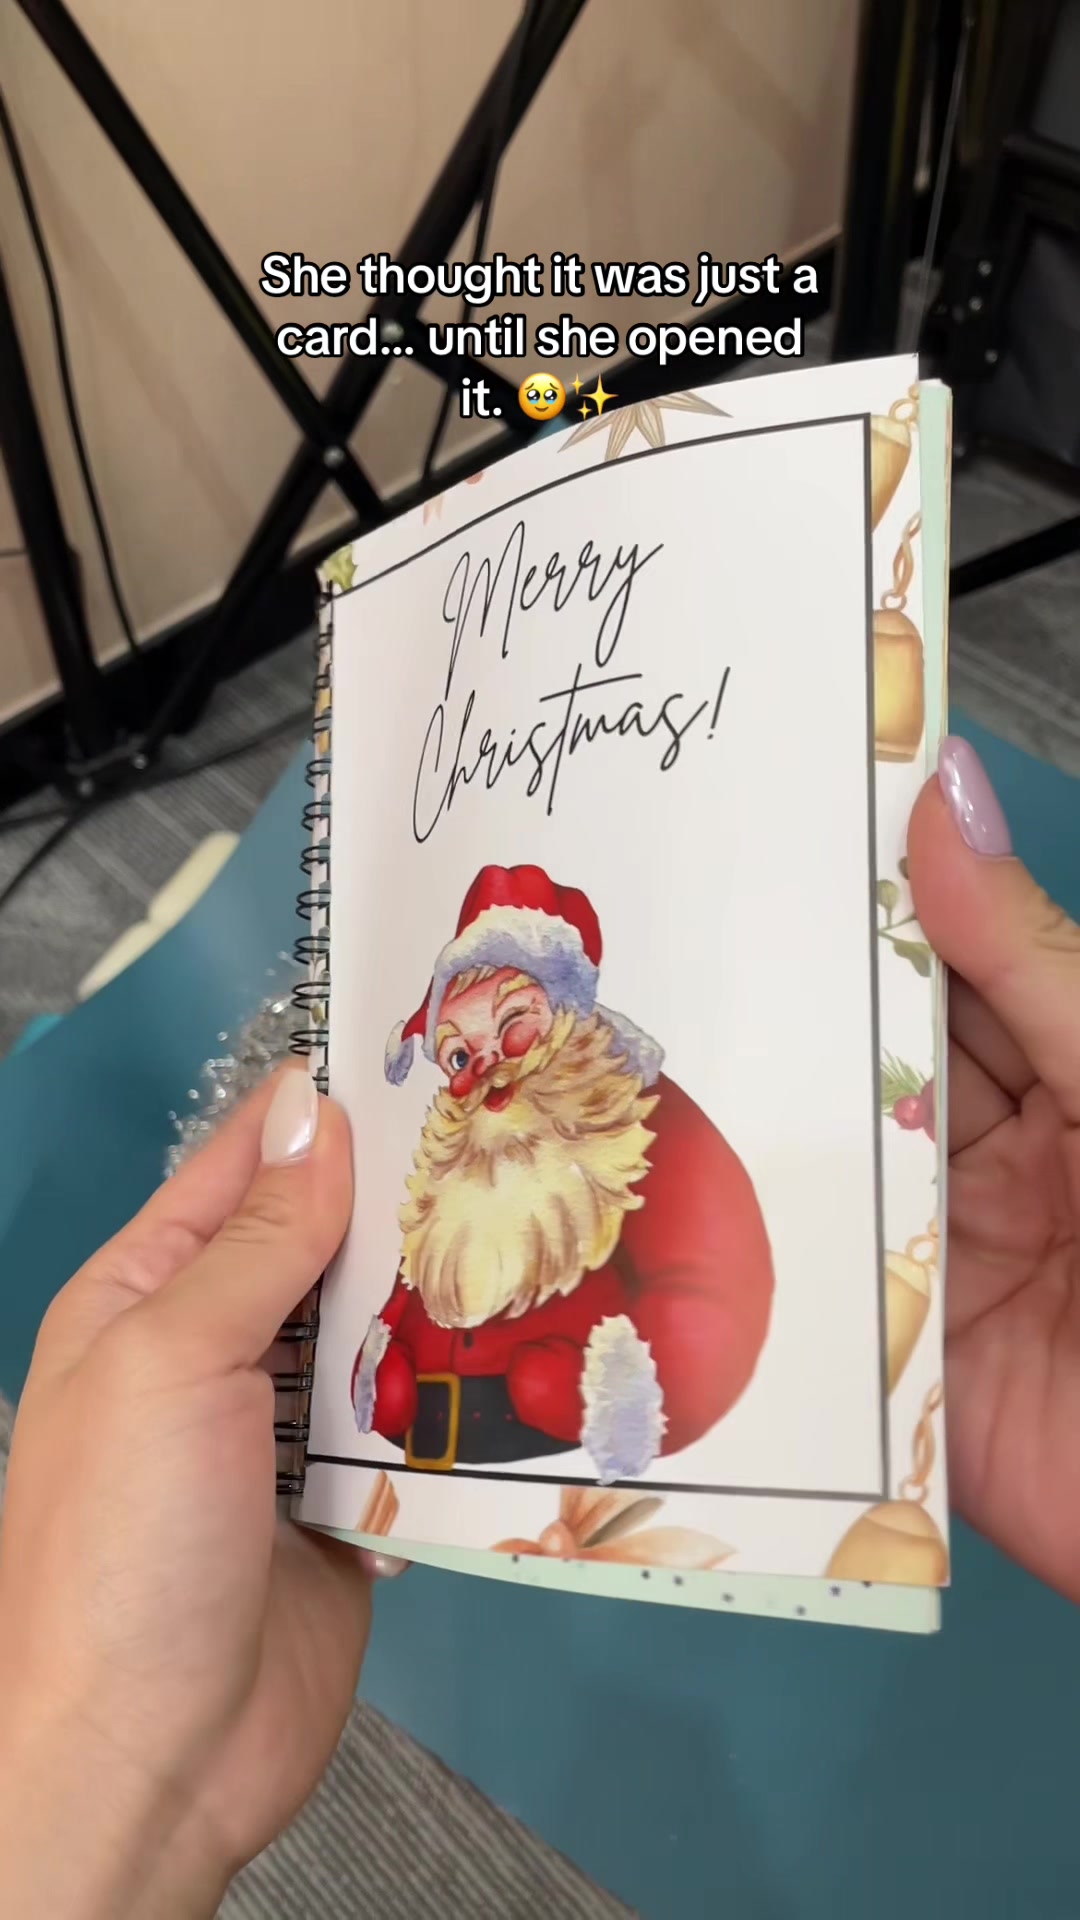 She thought it was just a
card... until she opened
it. 🥹✨
Merry
Christmas!